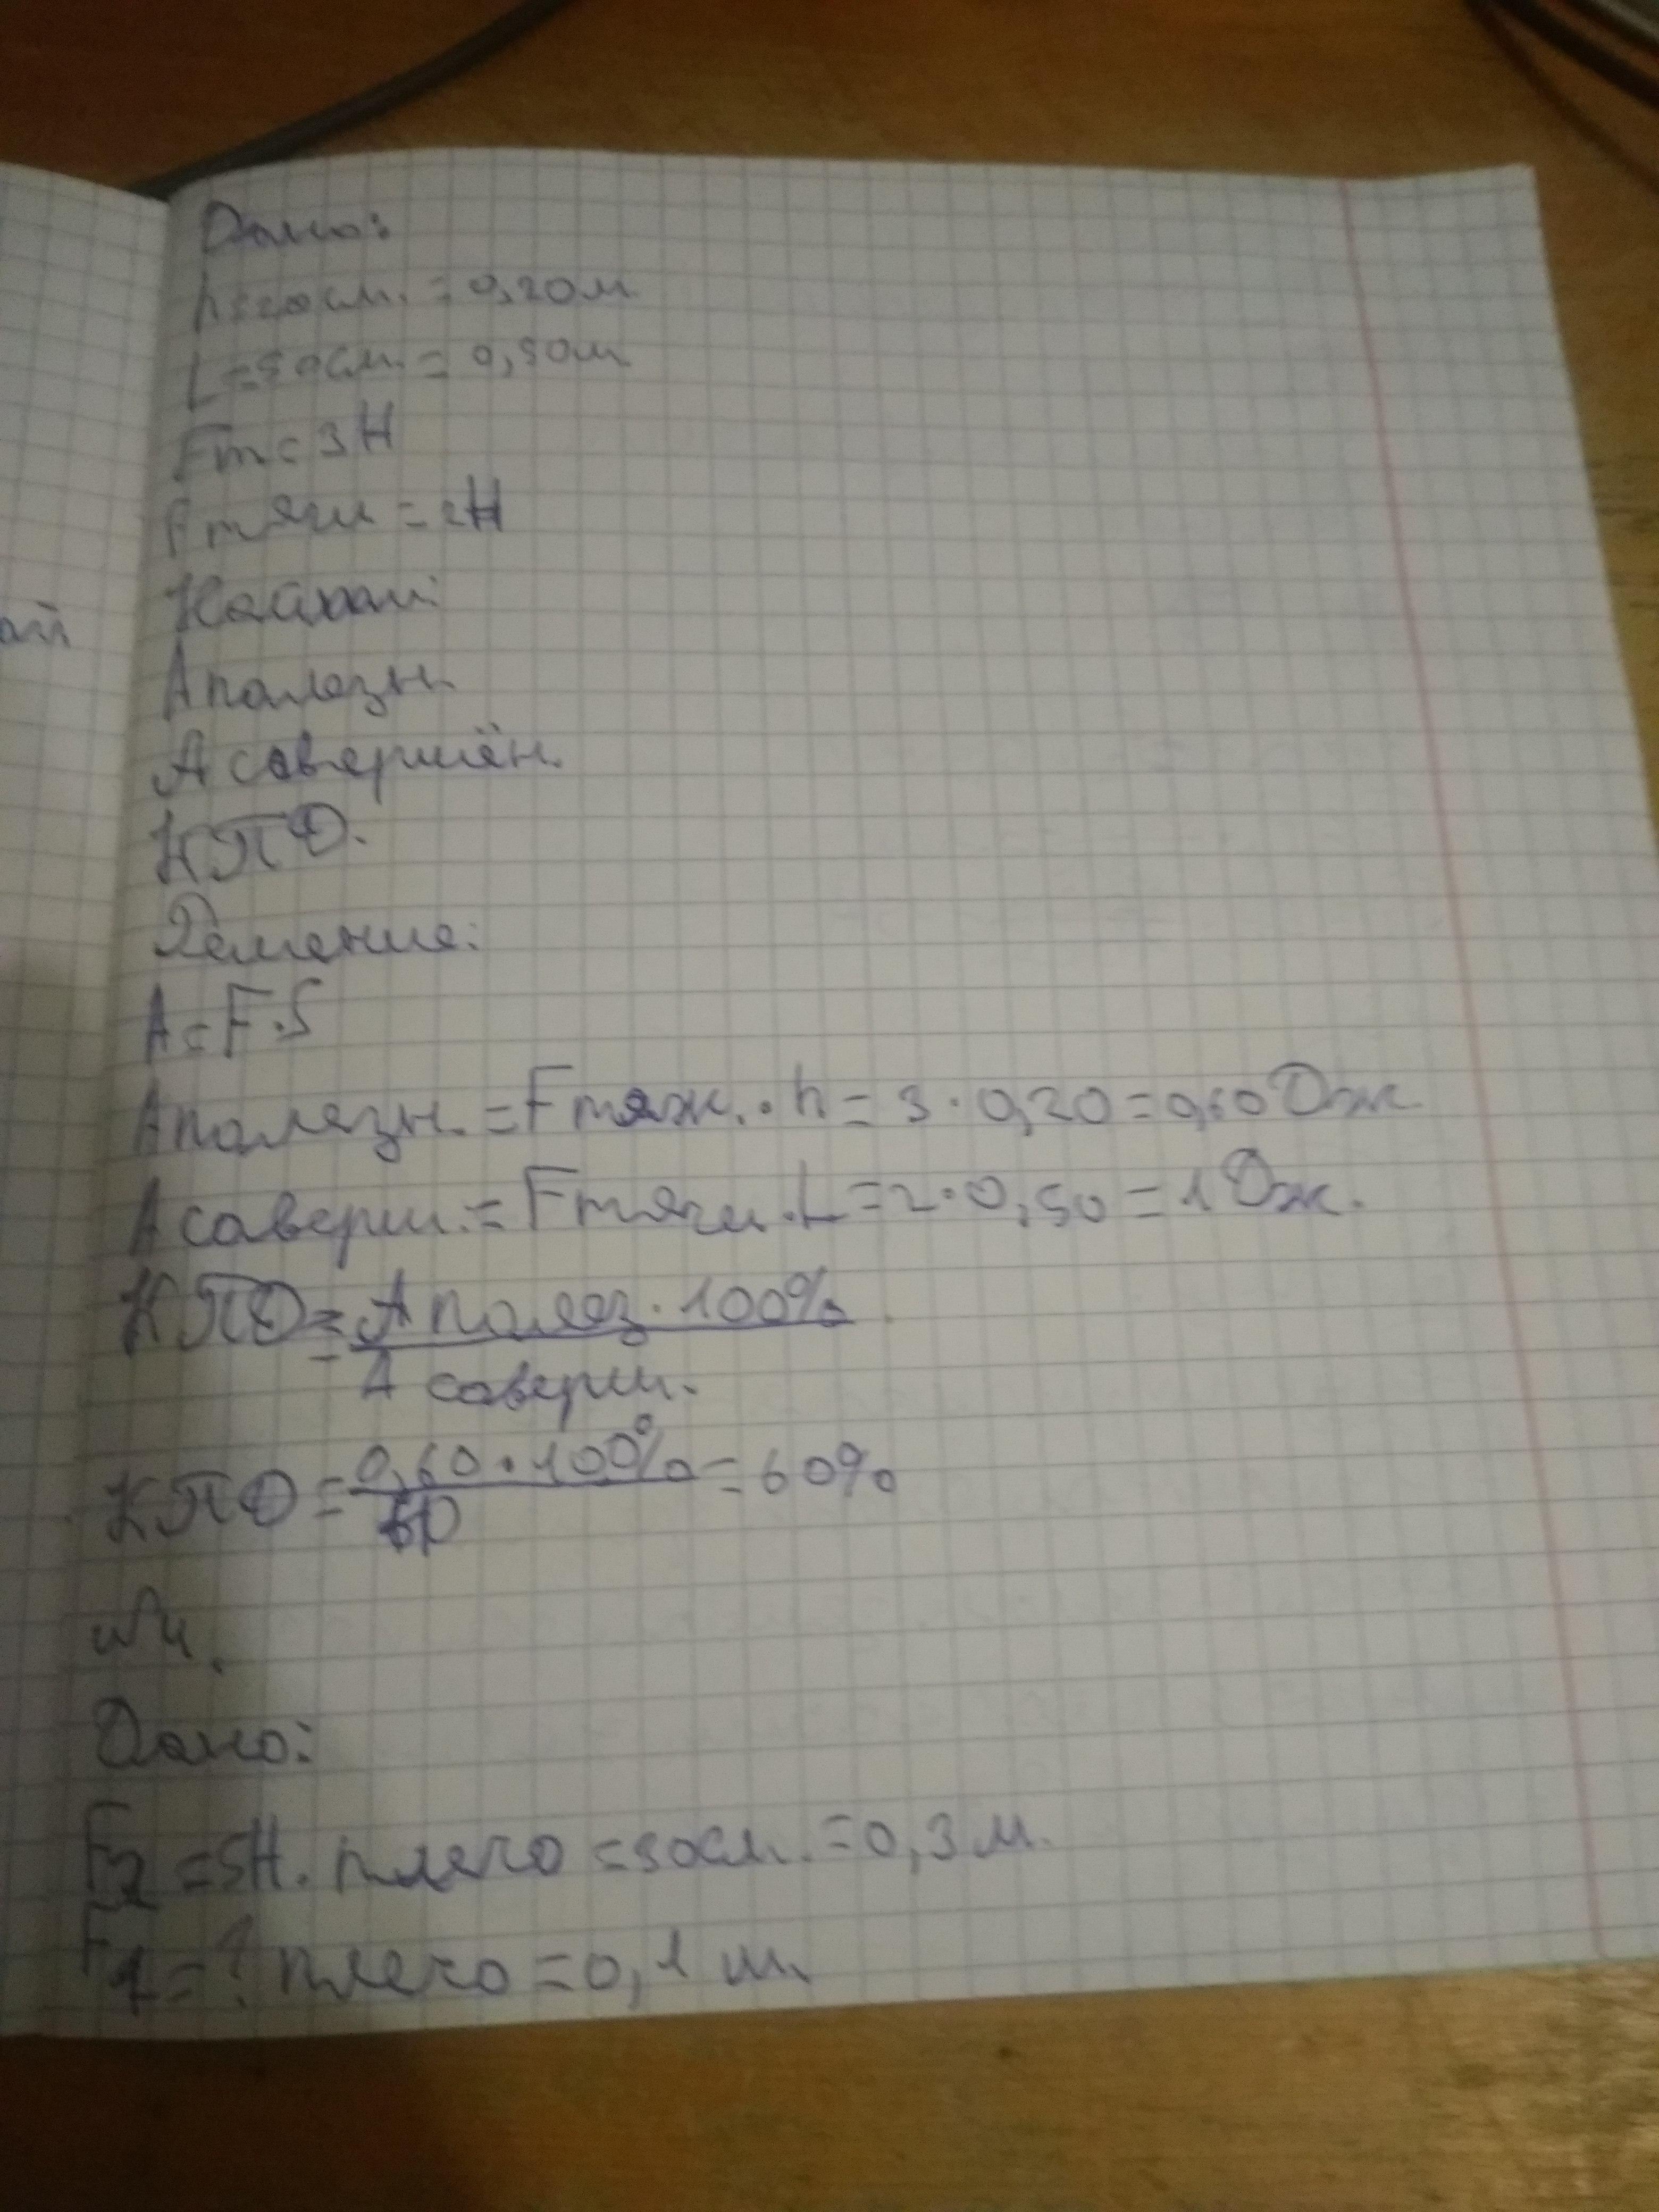 Дано:
h=20см. = 0,20м
L=50см. = 0,50м
Fт = 3Н
Fтяги = 2Н
Найти:
Аполезн.
А совершён.
КПД.
Решение:
A=F·S
Аполезн. = Fтяж. · h = 3 · 0,20 = 0,60 Дж
А соверш. = Fтяги · L = 2 · 0,50 = 1 Дж.
КПД = А полез · 100%
А соверш.
КПД = 0,60 · 100% = 60%
№4.
Дано:
F2 = 5Н. плечо = 30см. = 0,3 м.
F1 = ? плечо = 0,1 м.